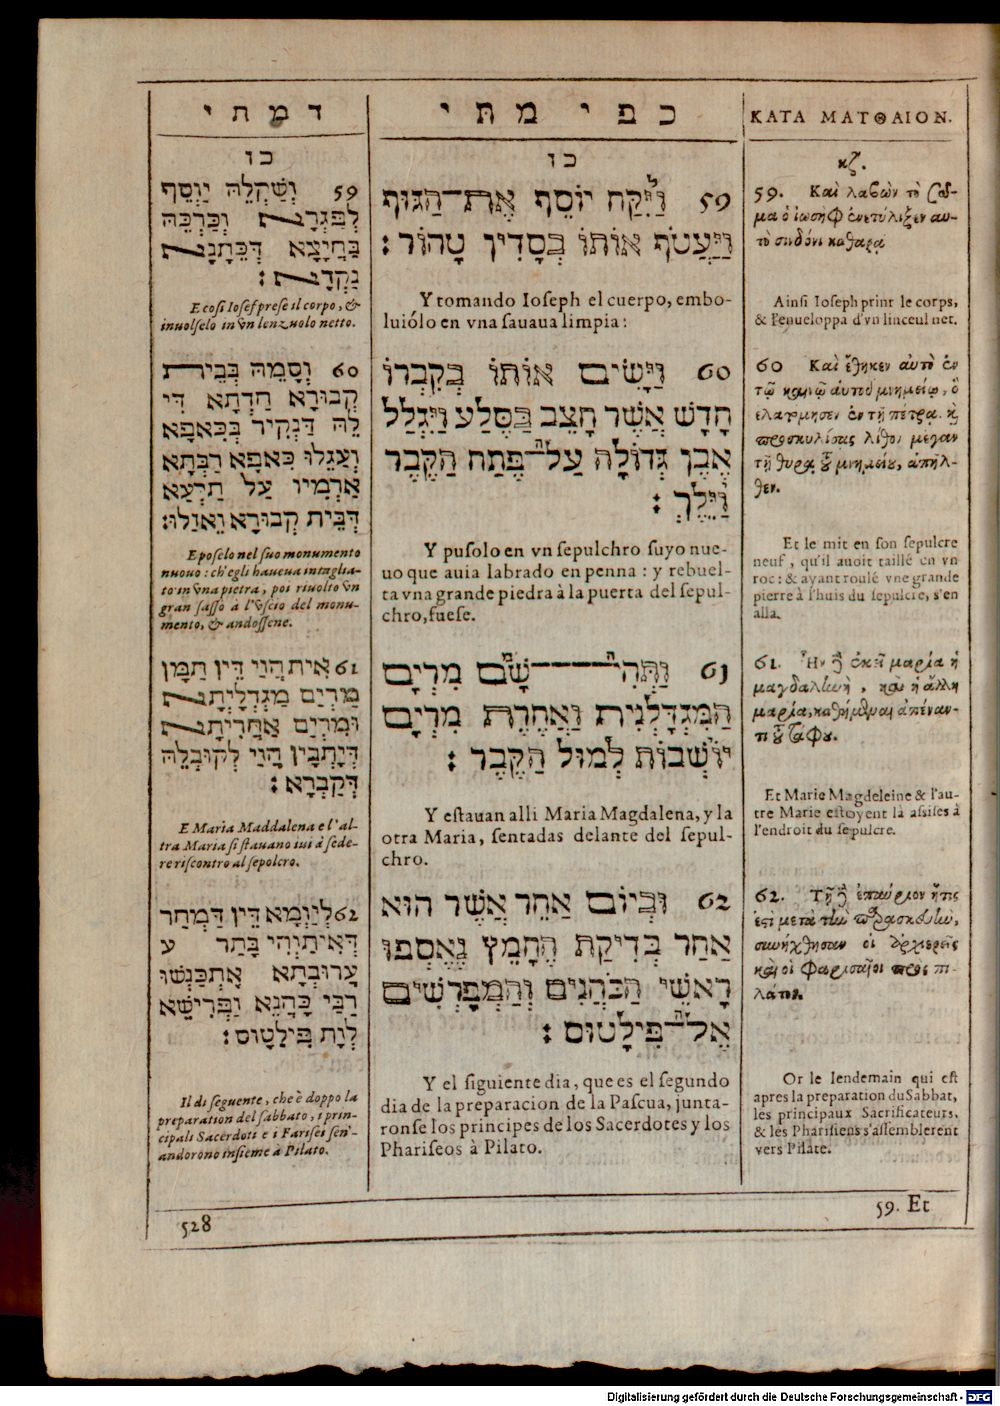 דמתי
כו
59 וְשַׁקְלֵהּ יַוְסֵף
לְפַגְרָא וְכַרְכֵּהּ
בַּחְיָצָא דְּכֶתָנָא
נַקְדָא :
E cosi Iosef prese il corpo, &
inuolselo in vn lenzuolo netto.
60 וְסָמֵהּ בְּבֵית
קְבוּרָא חַדְתָא דִי
לֵהּ דַּנְקִיר בְּכִאפָא
וְעַגֵלוּ כִּאפָא רַבְּתָא
אַרְמִיו עַל תַּרְעָא
דְּבֵית קְבוּרָא וֵאזַלוּ:
E poselo nel suo monumento
nuouo : ch'egli haueua intaglia-
to in vna pietra, poi riuolto vn
gran sasso à l'vscio del monu-
mento, & andossene.
61 אִית הֲוַי דֵּין תַּמָּן
מַרְיַם מַגְדְּלָיְתָא
וּמַרְיַם אַחֲרִיתָא
דְּיָתְבִין הֲוַי לְקוּבְלֵהּ
דְּקַבְרָא :
E Maria Maddalena e l'al-
tra Maria si stauano iui à sede-
re riscontro al sepolcro.
62 לְיַוְמָא דֵּין דַּמְחַר
דְּאִיתַיְהִי בָּתַר ע
עֲרוּבְתָא אֶתְכְּנַשׁוּ
רַבַּי כָּהֲנֵא וַפְרִישֵׁא
לְוָת פִּילַטוּס :
Il di seguente, che è doppo la
preparation del sabbato, i prin-
cipali Sacerdoti e i Farisei sen'
andorono insieme à Pilato.
כפי מתי
כו
59 וַיִּקַּח יוֹסֵף אֶת־הַגּוּף
וַיַּעֲטֹף אוֹתוֹ בְּסָדִין טָהוֹר :
Y tomando Ioseph el cuerpo, embo-
luiólo en vna sauaua limpia :
60 וַיָּשִׂים אוֹתוֹ בְּקִבְרוֹ
חָדָשׁ אֲשֶׁר חָצֵב בַּסֶּלַע וַיִּגְלַל
אֶבֶן גְּדוֹלָה עַל־פֶּתַח הַקֶּבֶר
וַיֵּלֶךְ :
Y pusolo en vn sepulchro suyo nue-
uo que auia labrado en penna : y rebuel-
ta vna grande piedra à la puerta del sepul-
chro, fuese.
61 וַתְּהִי־שָׁם מִרְיָם
הַמַּגְדָּלְנִית וְאַחֶרֶת מִרְיָם
יוֹשְׁבוֹת לְמוּל הַקֶּבֶר :
Y estauan alli Maria Magdalena, y la
otra Maria, sentadas delante del sepul-
chro.
62 וּבְיוֹם אַחֵר אֲשֶׁר הוּא
אַחַר בְּדִיקַת הֶחָמֵץ נֶאֶסְפוּ
רָאשֵׁי הַכֹּהֲנִים וְהַמְפָרְשִׁים
אֶל־פִּילָטוּס :
Y el siguiente dia, que es el segundo
dia de la preparacion de la Pascua, junta-
ronse los principes de los Sacerdotes y los
Phariseos à Pilato.
ΚΑΤΑ ΜΑΤΘΑΙΟΝ.
κζ.
59. Καὶ λαβὼν τὸ σῶ-
μα ὁ ἰωσὴφ ἐνετύλιξεν αυ-
τὸ σινδόνι καθαρᾷ
Ainsi Ioseph print le corps,
& l'enueloppa d'vn linceul net.
60 Καὶ ἔθηκεν αὐτὸ ἐν
τῷ καινῷ αὐτοῦ μνημείῳ, ὃ
ἐλατόμησεν ἐν τῇ πέτρᾳ. κὶ
προσκυλίσας λίθον μεγαν
τῇ θύρᾳ τοῦ μνημείου, ἀπῆλ-
θεν.
Et le mit en son sepulcre
neuf, qu'il auoit taillé en vn
roc : & ayant roulé vne grande
pierre à l'huis du sepulcre, s'en
alla.
61. Ἦν δὲ ἐκεῖ μαρία ἡ
μαγδαληνὴ, καὶ ἡ ἄλλη
μαρία, καθήμεναι ἀπέναν-
τι τοῦ τάφου.
Et Marie Magdeleine & l'au-
tre Marie estoyent là assises à
l'endroit du sepulcre.
62. Τῇ δὲ ἐπαύριον ἥτις
ἐστὶ μετὰ τὴν παρασκευὴν,
συνήχθησαν οἱ ἀρχιερεῖς
καὶ οἱ Φαρισαῖοι προς πι-
λάτον.
Or le lendemain qui est
apres la preparation du Sabbat,
les principaux Sacrificateurs,
& les Pharisiens s'assemblerent
vers Pilate.
528
59. Et
Digitalisierung gefördert durch die Deutsche Forschungsgemeinschaft - DFG